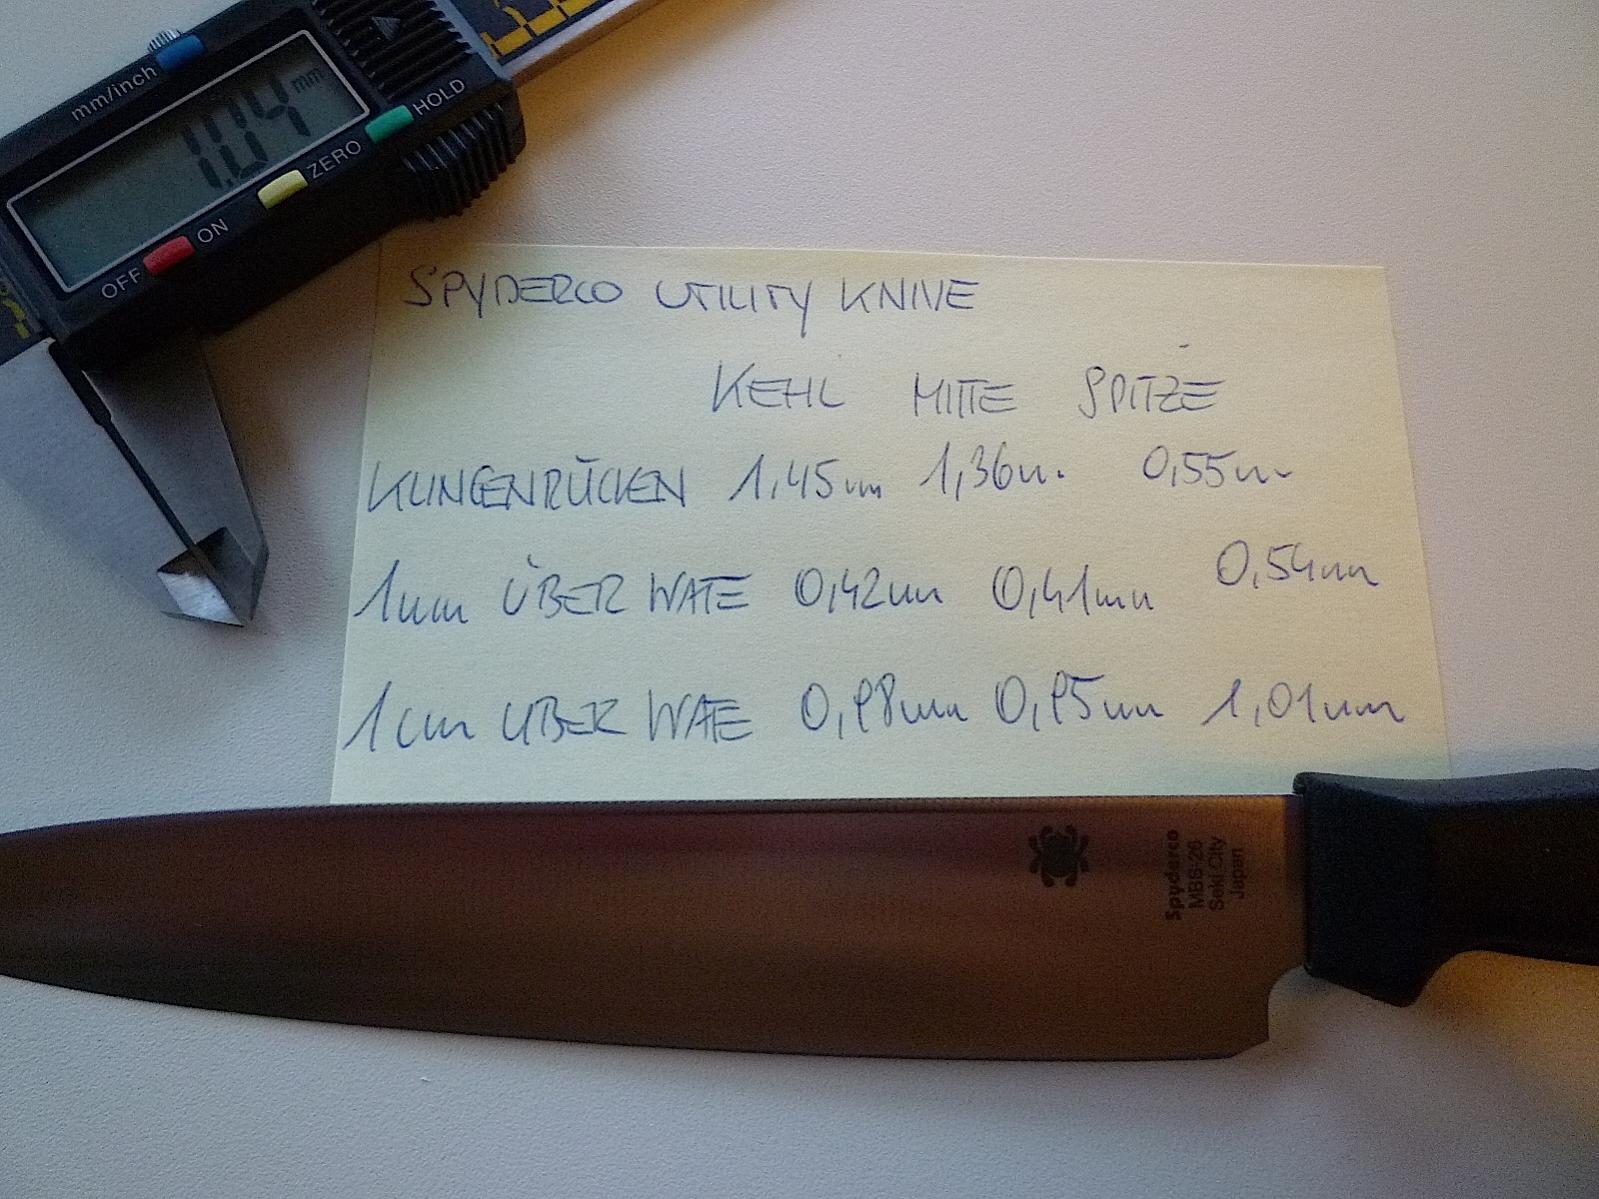 mm/inch
1.04 mm
OFF ON ZERO HOLD
SPYDERCO UTILITY KNIVE
KEHL MITTE SPITZE
KLINGENRÜCKEN 1,45mm 1,36m. 0,55m
1mm ÜBER WATE 0,42mm 0,41mm 0,54mm
1cm ÜBER WATE 0,98mm 0,95mm 1,01mm
Spyderco
MBS-26
Seki City
Japan